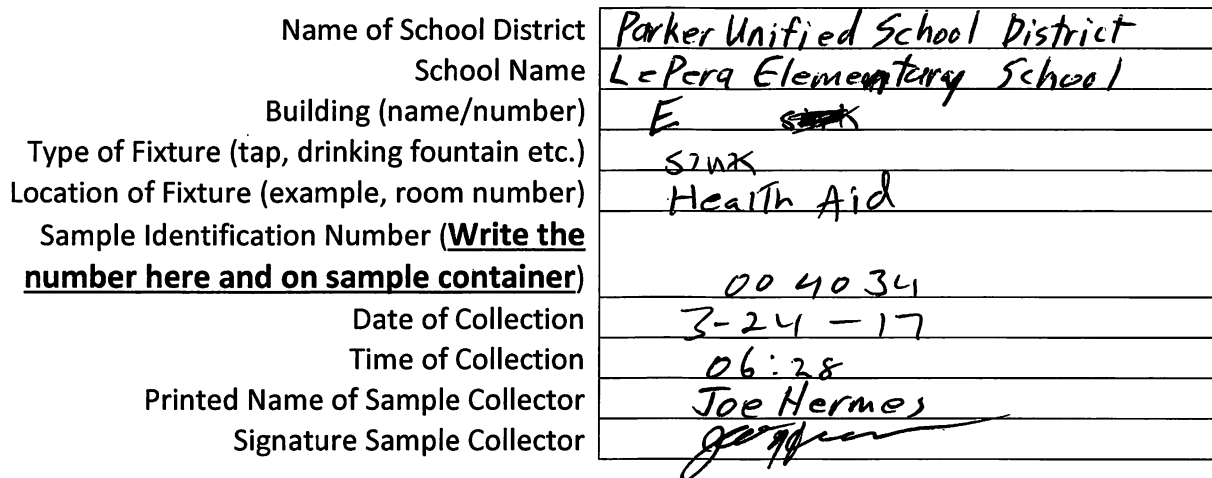 Name of School District Parker Unified School District
School Name LePera Elementary School
Building (name/number) E
Type of Fixture (tap, drinking fountain etc.) sink
Location of Fixture (example, room number) Health Aid
Sample Identification Number (Write the
number here and on sample container) 004034
Date of Collection 3-24-17
Time of Collection 06:28
Printed Name of Sample Collector Joe Hermes
Signature Sample Collector